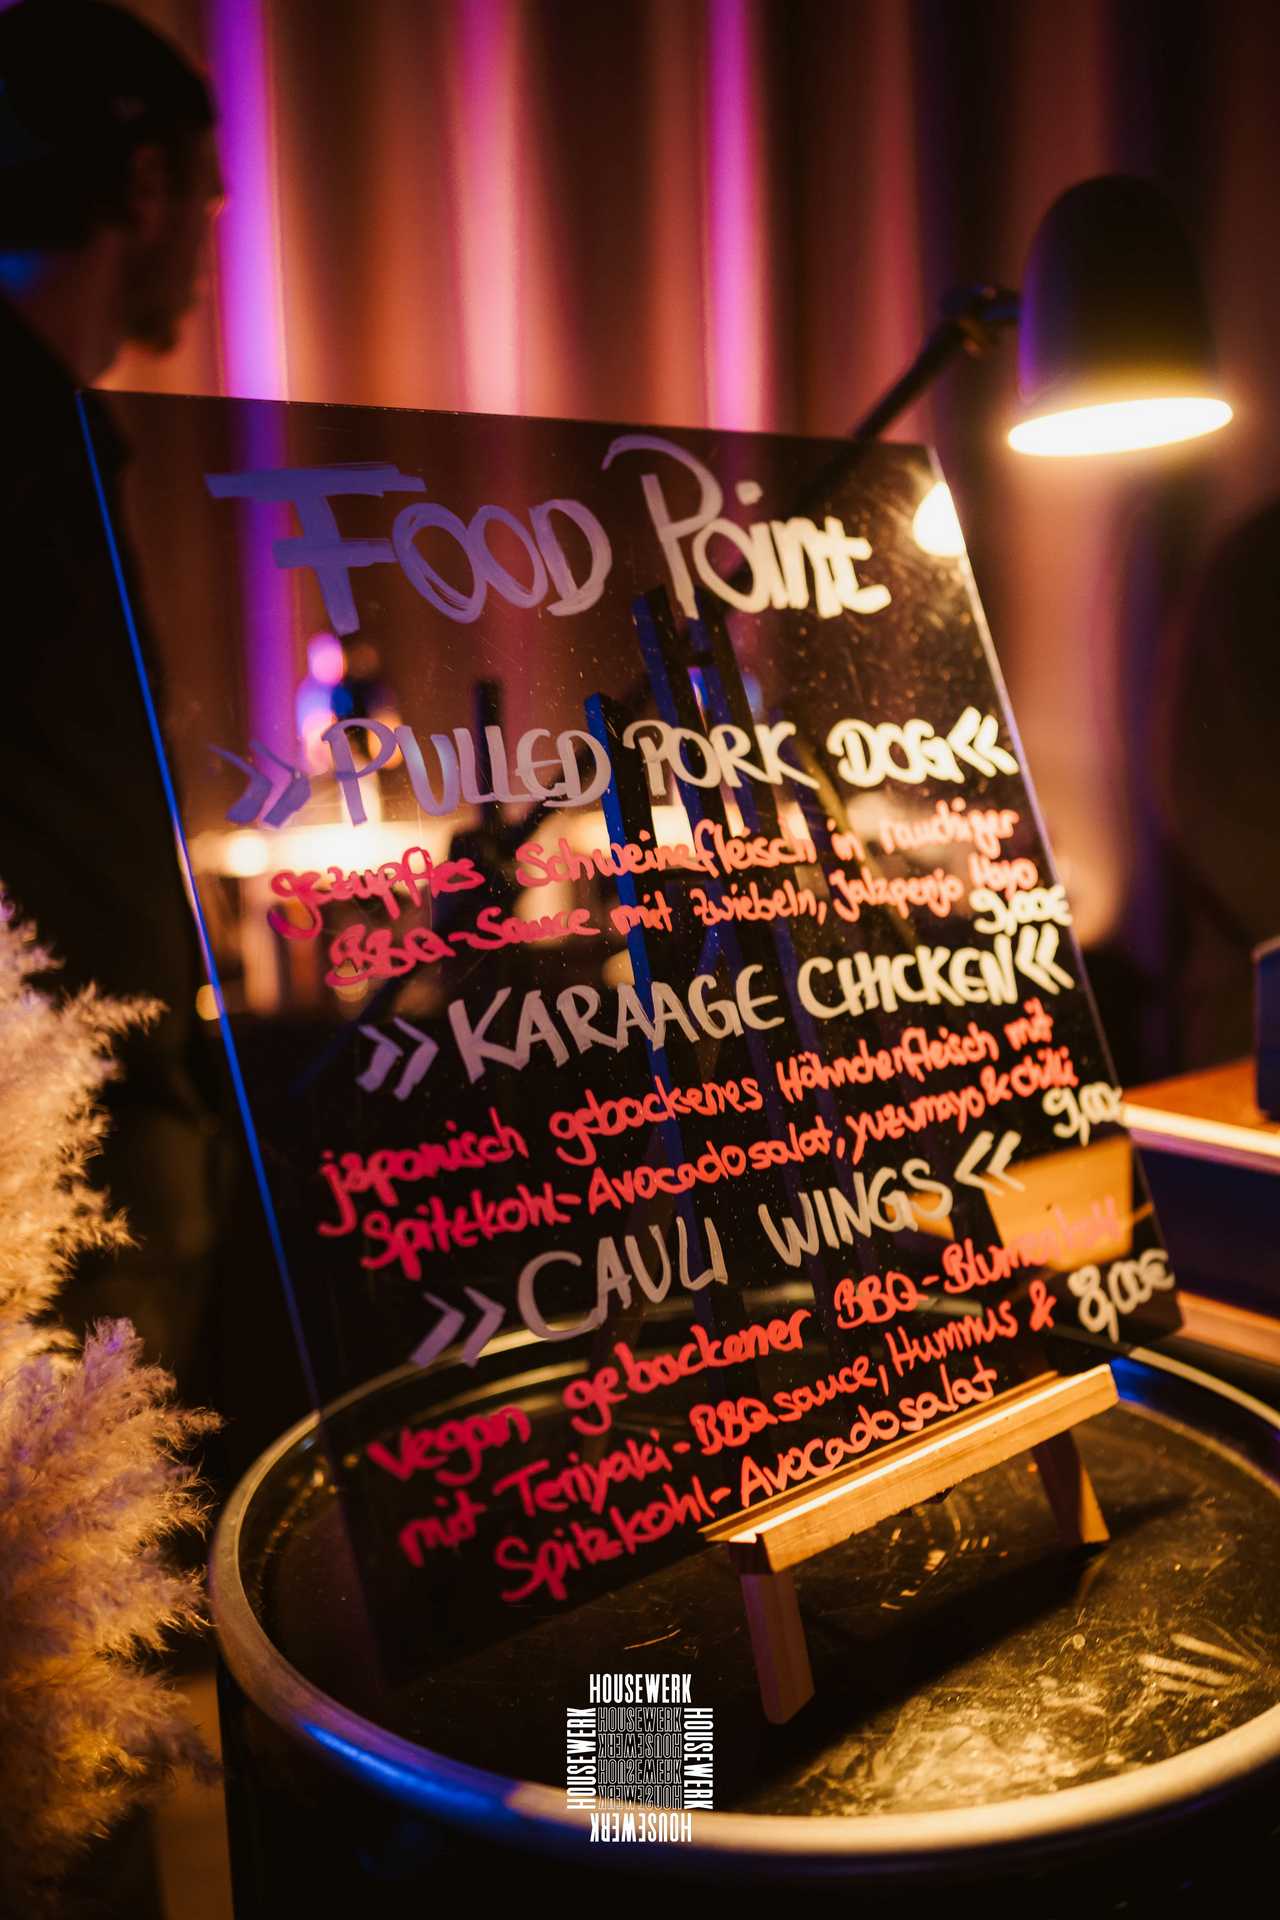 FOOD Point
» PULLED PORK DOG «
gezupftes Schweinefleisch in rauchiger
BBQ-Sauce mit Zwiebeln, Jalapenjo Mayo
9,00€
» KARAAGE CHICKEN «
japanisch gebackenes Hähnchenfleisch mit
Spitzkohl-Avocadosalat, yuzumayo & chilli
9,00€
» CAULI WINGS «
Vegan gebackener BBQ-Blumenkohl
mit Teriyaki-BBQsauce, Hummus & 8,00€
Spitzkohl-Avocadosalat
HOUSEWERK
HOUSEWERK
HOUSEWERK
HOUSEWERK
HOUSEWERK
HOUSEWERK
HOUSEWERK
HOUSEWERK
HOUSEWERK